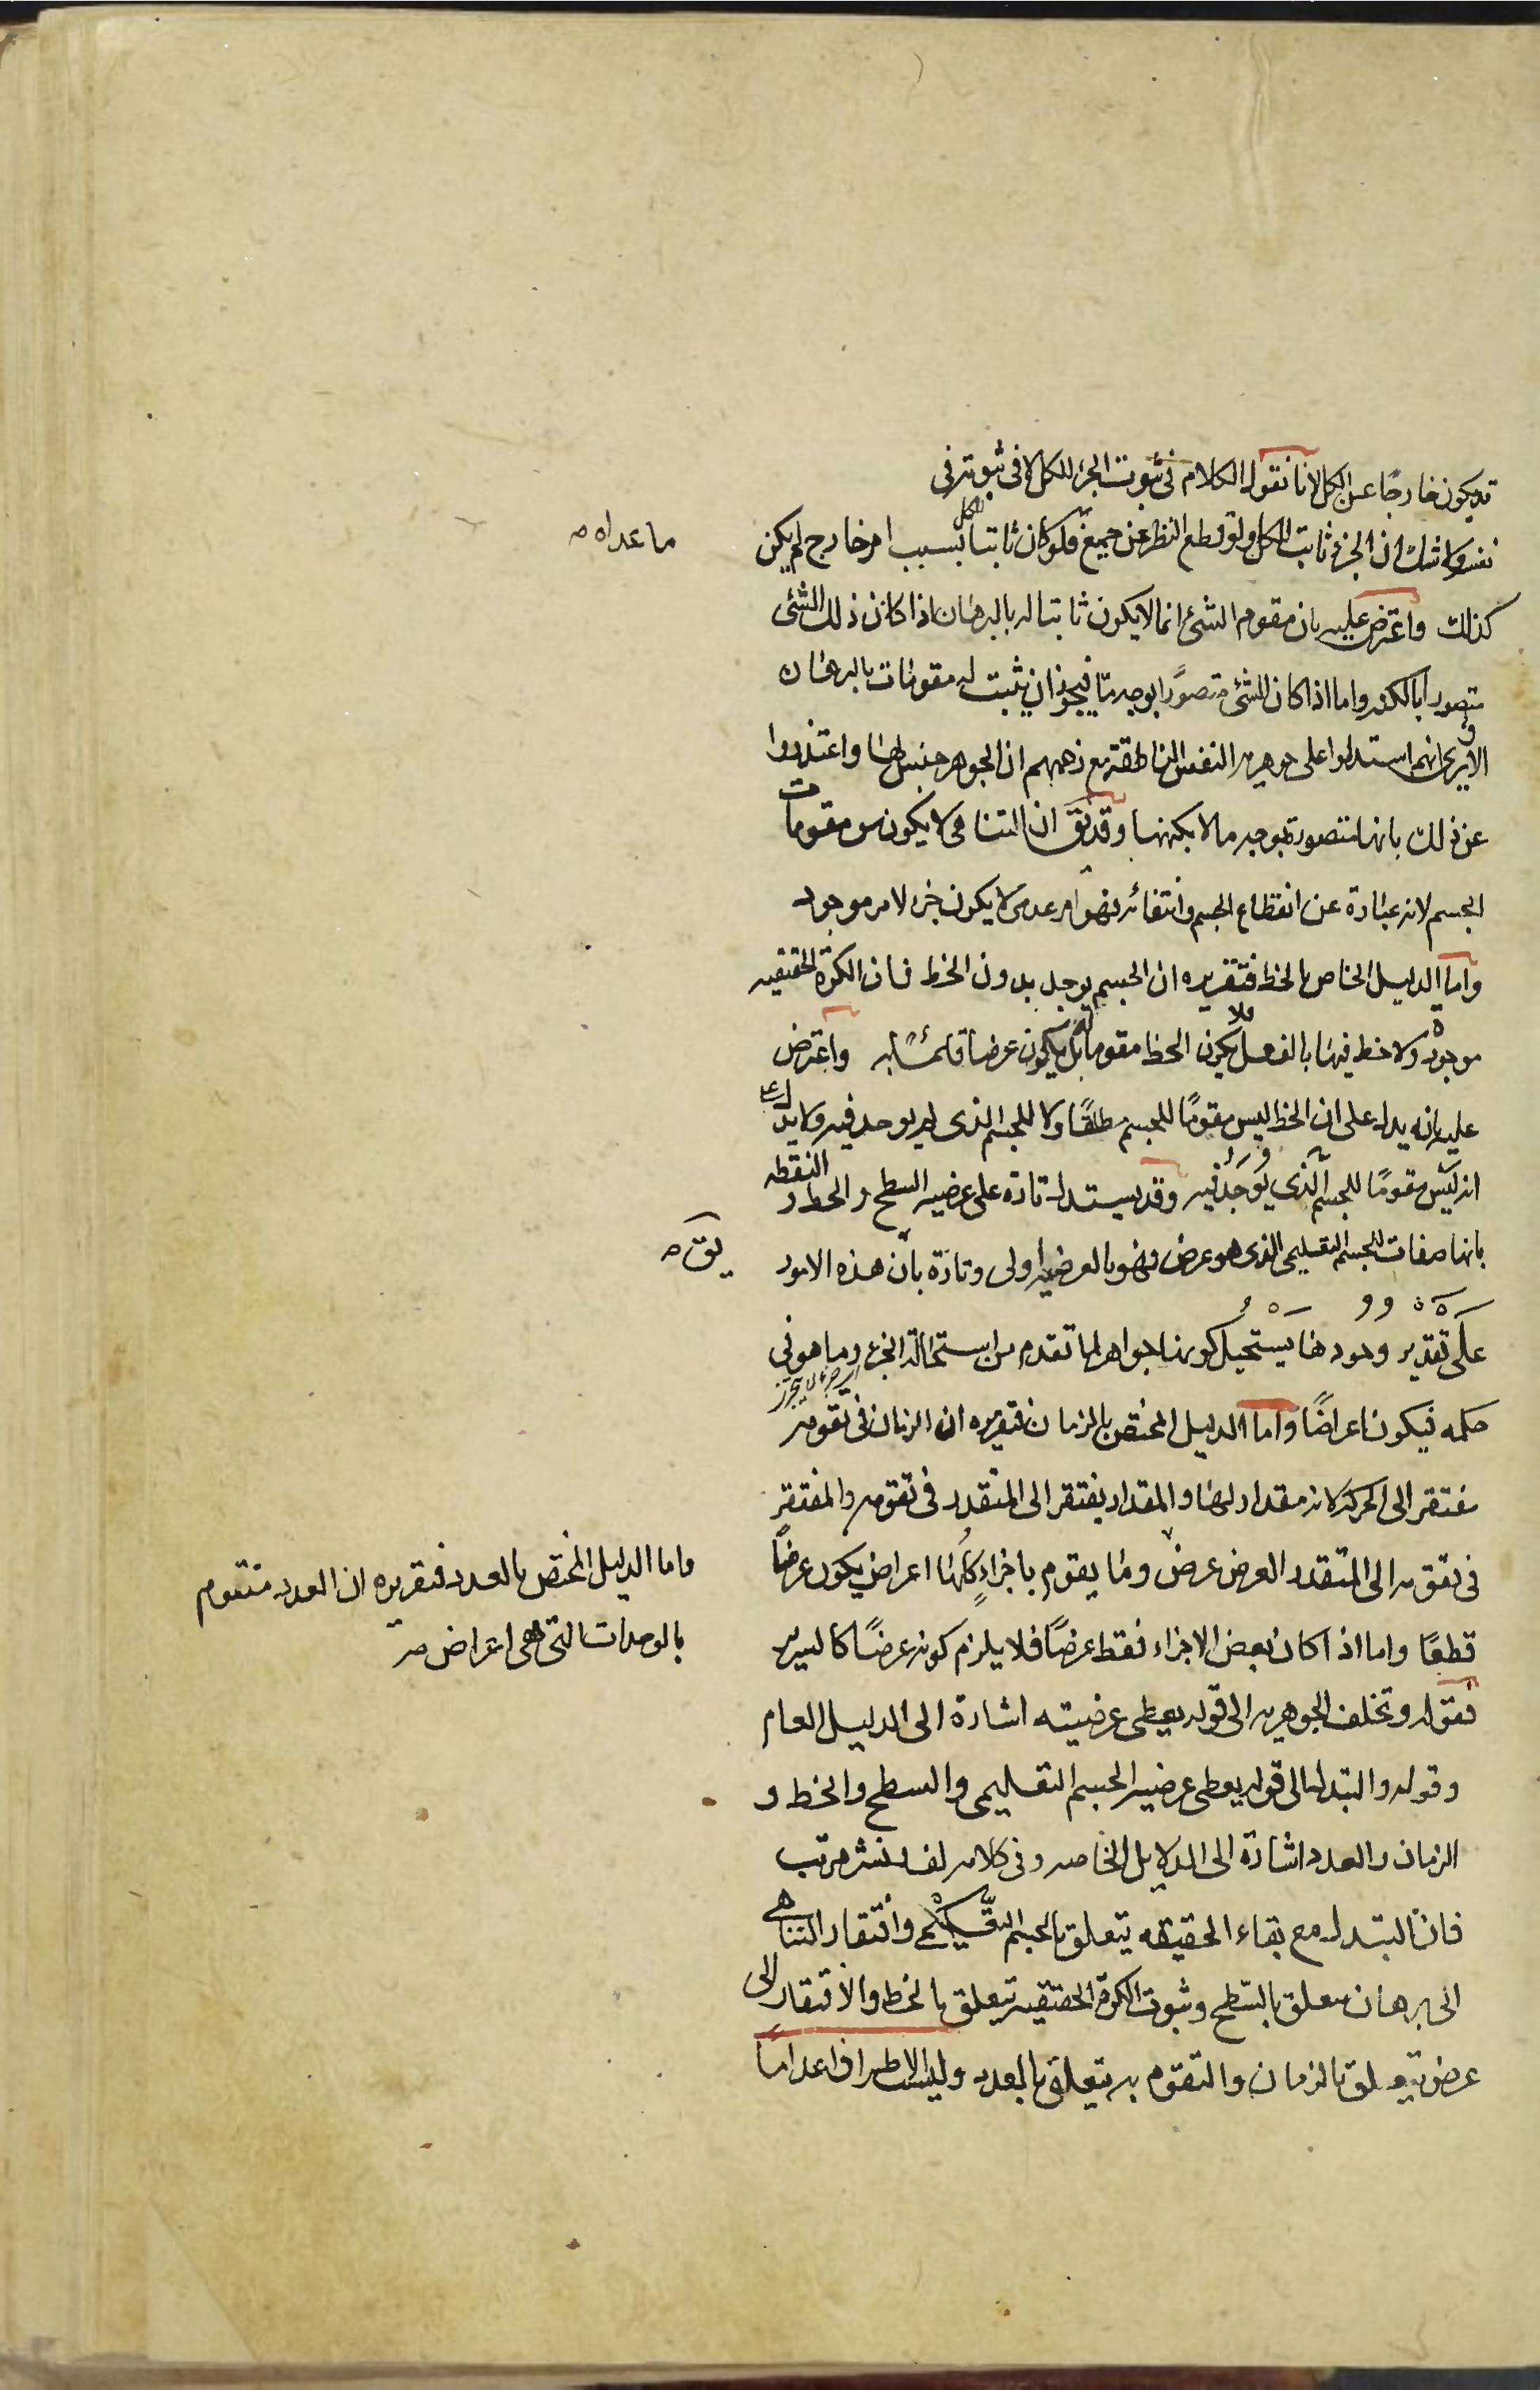 قد يكون خارجا عن الكل لانا نقول الكلام فى ثبوت الجزء للكل لا فى ثبوته فى
نفسه ولا شك ان الجزء ثابت للكل ولو قطع النظر عن جميع فلو كان ثابتا للكل بسبب امر خارج لم يكن
ما عداه صح
كذلك واعترض عليه بان مقوم الشئ انما لا يكون ثابتا له بالبرهان اذا كان ذلك الشئ
متصورا بالكنه واما اذا كان الشئ متصورا بوجه ما فيجوز ان يثبت له مقومات بالبرهان
الا يرى انهم استدلوا على جوهرية النفس الناطقة مع زعمهم ان الجوهر جنس لها واعتذروا
عن ذلك بانها متصورة بوجه ما لا بكنهها وقد يق ان التناهى لا يكون من مقومات
الجسم لانه عبارة عن انقطاع الجسم وانتفائه فهو امر عدمى لا يكون جزء لامر موجود
واما الدليل الخاص بالخط فتقريره ان الجسم يوجد بدون الخط فان الكرة الحقيقيه
موجودة ولا خط فيها بالفعل فلا يكون الخط مقوما له بل يكون عرضا قائما به واعترض
عليه بانه يدل على ان الخط ليس مقوما للجسم مطلقا ولا للجسم الذى لم يوجد فيه ولا يدل على
انه ليس مقوما للجسم الذى يوجد فيه وقد يستدل تارة على عرضيه السطح والخط و النقطه
بانها صفات للجسم التعليمى الذى هو عرض فهو بالعرضيه اولى وتارة بان هذه الامور
يق صح
على تقدير وجودها يستحيل كونها جواهر لما تقدم من استحالة الجزء وما هو فى
حكمه فيكون اعراضا واما الدليل المختص بالزمان فتقريره ان الزمان فى تقومه
مفتقر الى الحركة لانه مقدار لها والمقدار يفتقر الى المتقدر فى تقومه والمفتقر
فى تقومه الى المتقدر العرض عرض وما يقوم باجزاء كلها اعراض يكون عرضا
واما الدليل المختص بالعدد فتقريره ان العدد متقوم
بالوحدات التى هى اعراض صح
قطعا واما اذا كان بعض الاجزاء فقط عرضا فلا يلزم كونه عرضا كالسرير
فقوله وتخلف الجوهرية الى قوله يعطى عرضيته اشارة الى الدليل العام
وقوله والتبدل الى قوله يعطى عرضيه الجسم التعليمى والسطح والخط و
الزمان والعدد اشارة الى الدلايل الخاصه وفى كلامه لف ونشر مرتب
فان التبدل مع بقاء الحقيقه يتعلق بالجسم التعليمى وافتقار التناهى
الى برهان يتعلق بالسطح وثبوت الكرة الحقيقيه يتعلق بالخط والافتقار الى
عرض يتعلق بالزمان والتقوم به يتعلق بالعدد وليست الاطراف اعداما